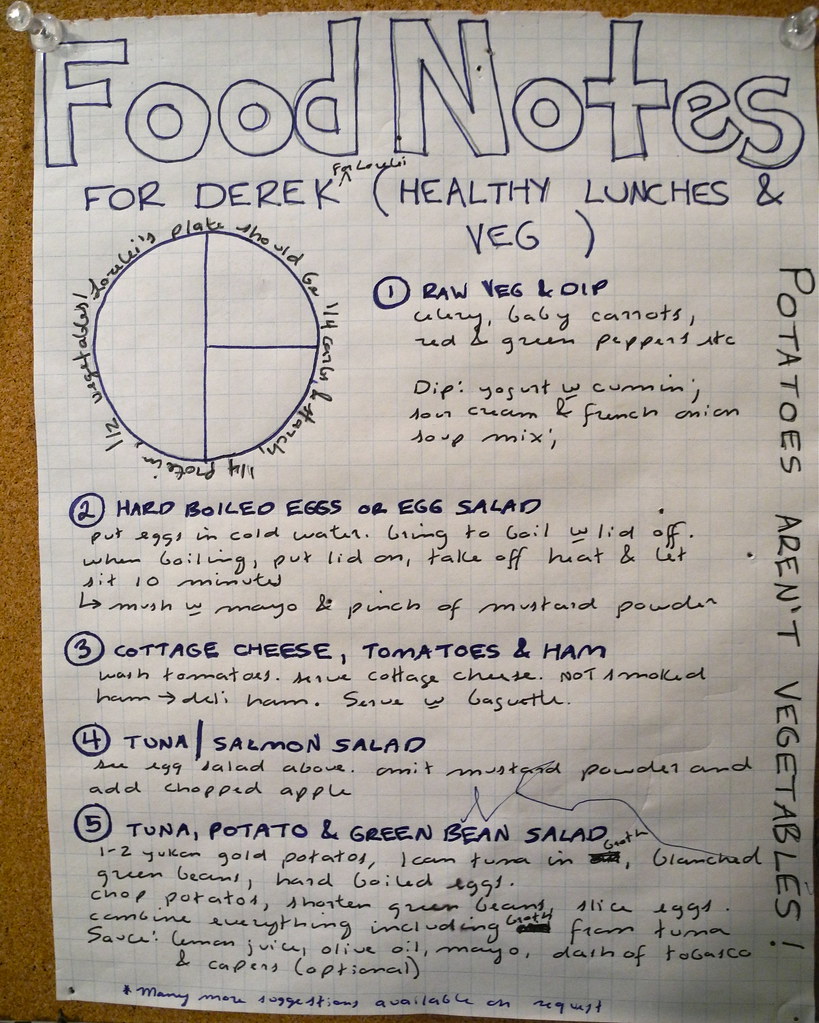 Food Notes
For Lorelei
FOR DEREK ^ (HEALTHY LUNCHES &
VEG )
Lorelei's plate should be 1/4 carbs & starch, 1/4 protein, 1/2 vegetables!
① RAW VEG & DIP
celery, baby carrots,
red & green peppers etc
Dip: yogurt w cummin;
sour cream & french onion
soup mix;
② HARD BOILED EGGS OR EGG SALAD
put eggs in cold water. bring to boil w lid off.
when boiling, put lid on, take off heat & let
sit 10 minutes
↳ mush w mayo & pinch of mustard powder
③ COTTAGE CHEESE, TOMATOES & HAM
wash tomatoes. serve cottage cheese. NOT smoked
ham → deli ham. Serve w baguette.
④ TUNA/SALMON SALAD
see egg salad above. omit mustard powder and
add chopped apple
⑤ TUNA, POTATO & GREEN BEAN SALAD
1-2 yukon gold potatos, 1 can tuna in broth, blanched
green beans, hard boiled eggs.
chop potatos, shorten green beans, slice eggs.
combine everything including broth from tuna
Sauce: lemon juice, olive oil, mayo, dash of tobasco
& capers (optional)
*Many more suggestions available on request
POTATOES AREN'T VEGETABLES!